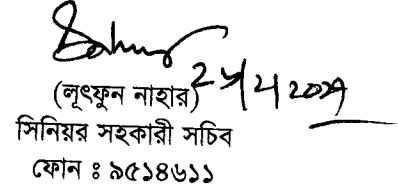 (লূৎফুন নাহার)
সিনিয়র সহকারী সচিব
ফোন ঃ ৯৫১৪৬১১